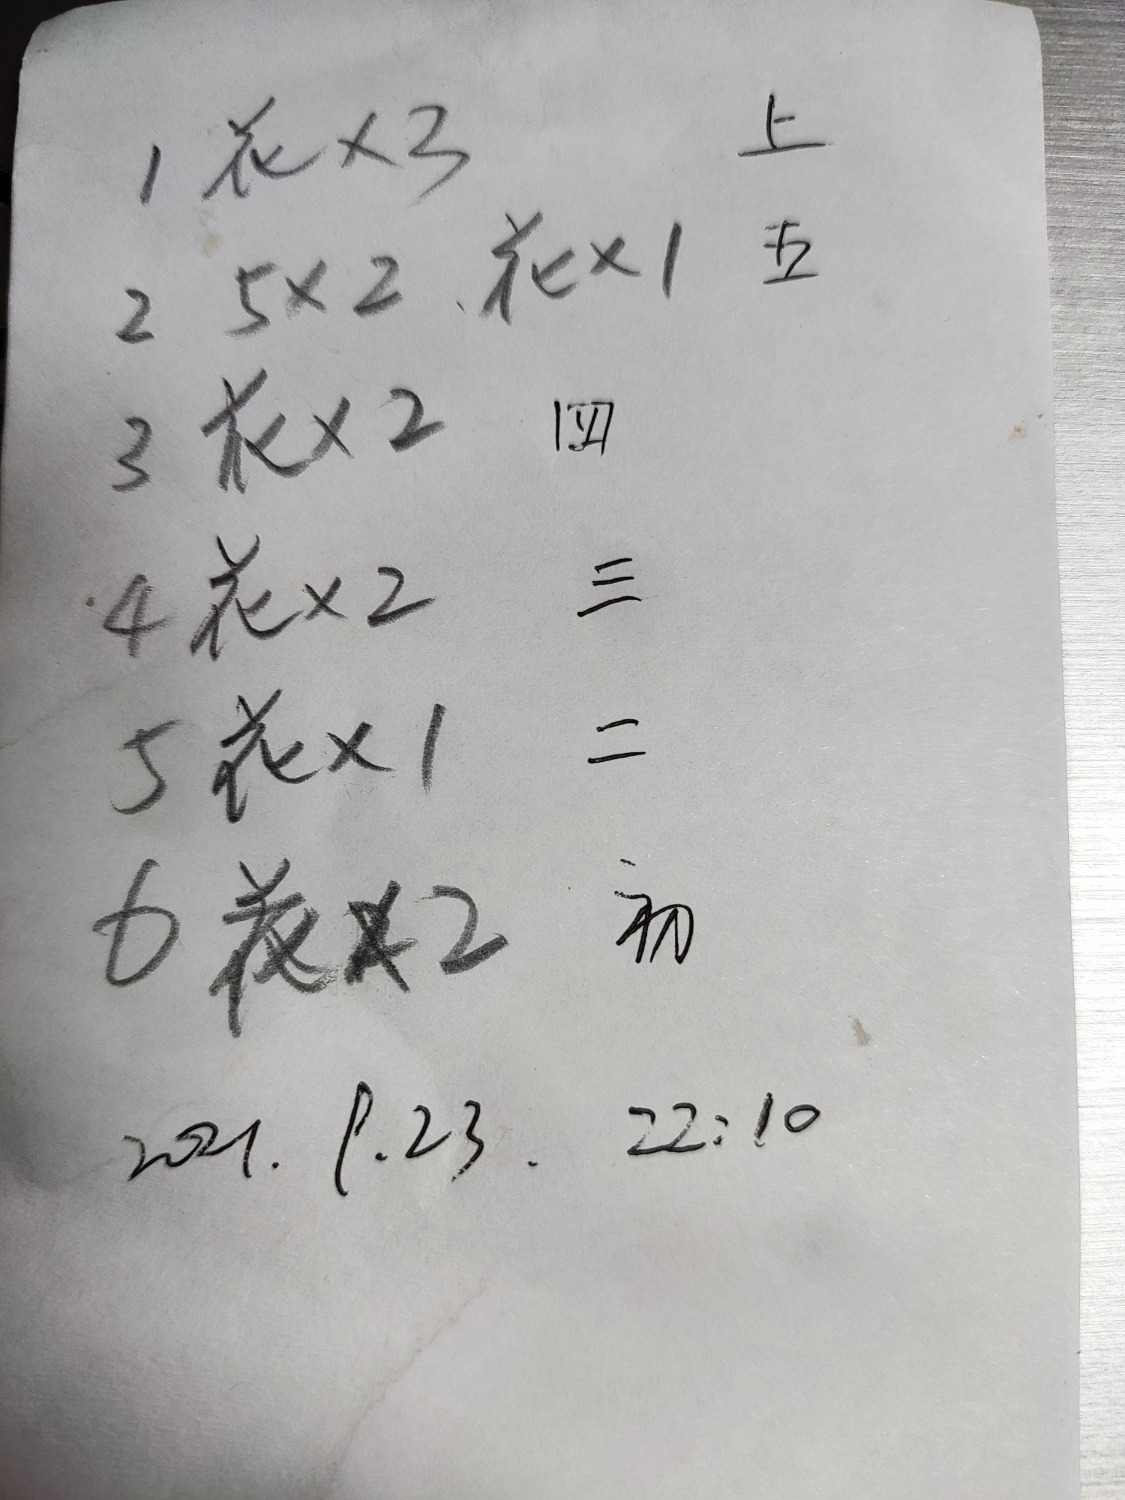 1 花×3 上
2 5×2、花×1 五
3 花×2 四
4 花×2 三
5 花×1 二
6 花×2 初
2021. 9.23. 22:10